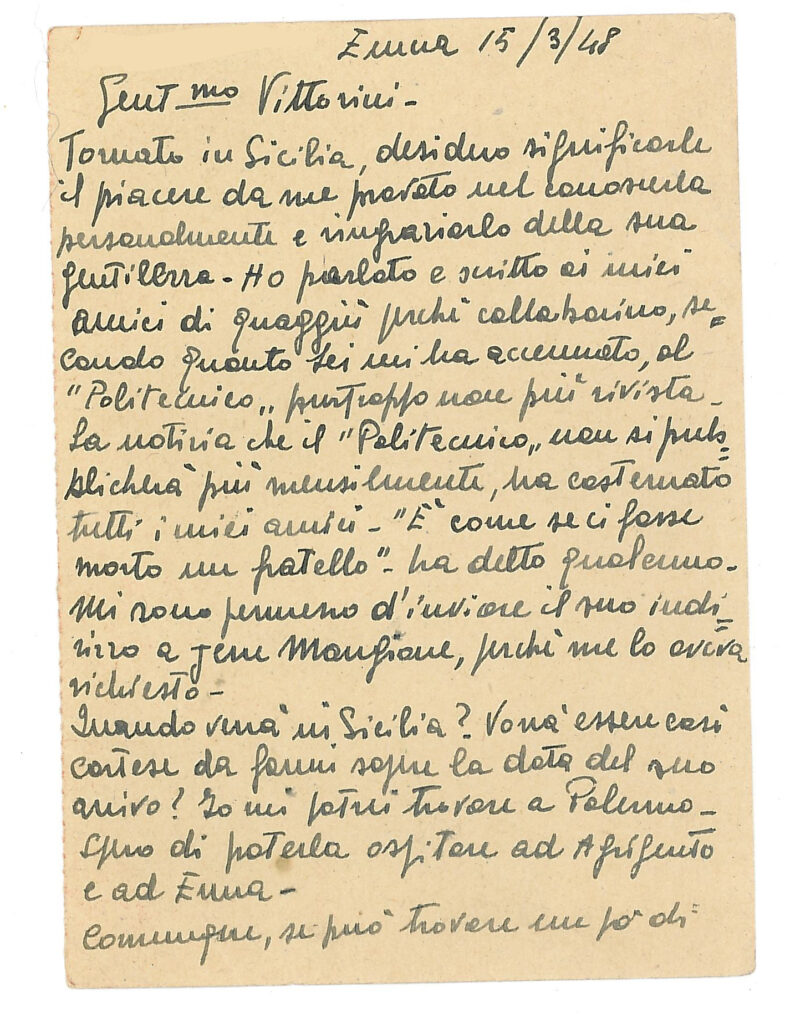 Enna 15/3/48
Gent.mo Vittorini -
Tornato in Sicilia, desidero significarle
il piacere da me provato nel conoscerla
personalmente e ringraziarlo della sua
gentilezza - Ho parlato e scritto ai miei
amici di quaggiù perchè collaborino, se=
condo quanto Lei mi ha accennato, al
"Politecnico„ purtroppo non più rivista -
La notizia che il "Politecnico„ non si pub=
blicherà più mensilmente, ha costernato
tutti i miei amici - "È come se ci fosse
morto un fratello" - ha detto qualcuno -
Mi sono permesso d'inviare il suo indi=
rizzo a Jerre Mangione, perchè me lo aveva
richiesto -
Quando verrà in Sicilia? Vorrà essere così
cortese da farmi sapere la data del suo
arrivo? Io mi potrei trovare a Palermo -
Spero di poterla ospitare ad Agrigento
e ad Enna -
Comunque, se può trovare un pò di